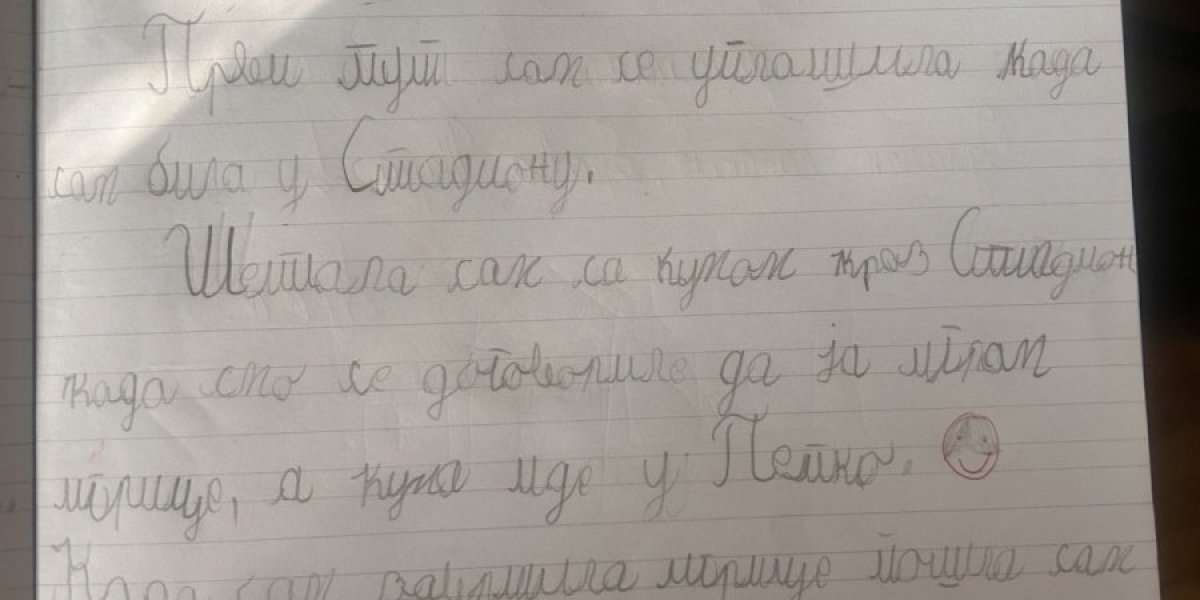 Први пут сам се уплашила када
сам била у Стадиону.
Шетала сам са кумом кроз Стадион
када смо се договориле да ја играм
игрице, а кума иде у Пепко.
Када сам завршила игрице пошла сам